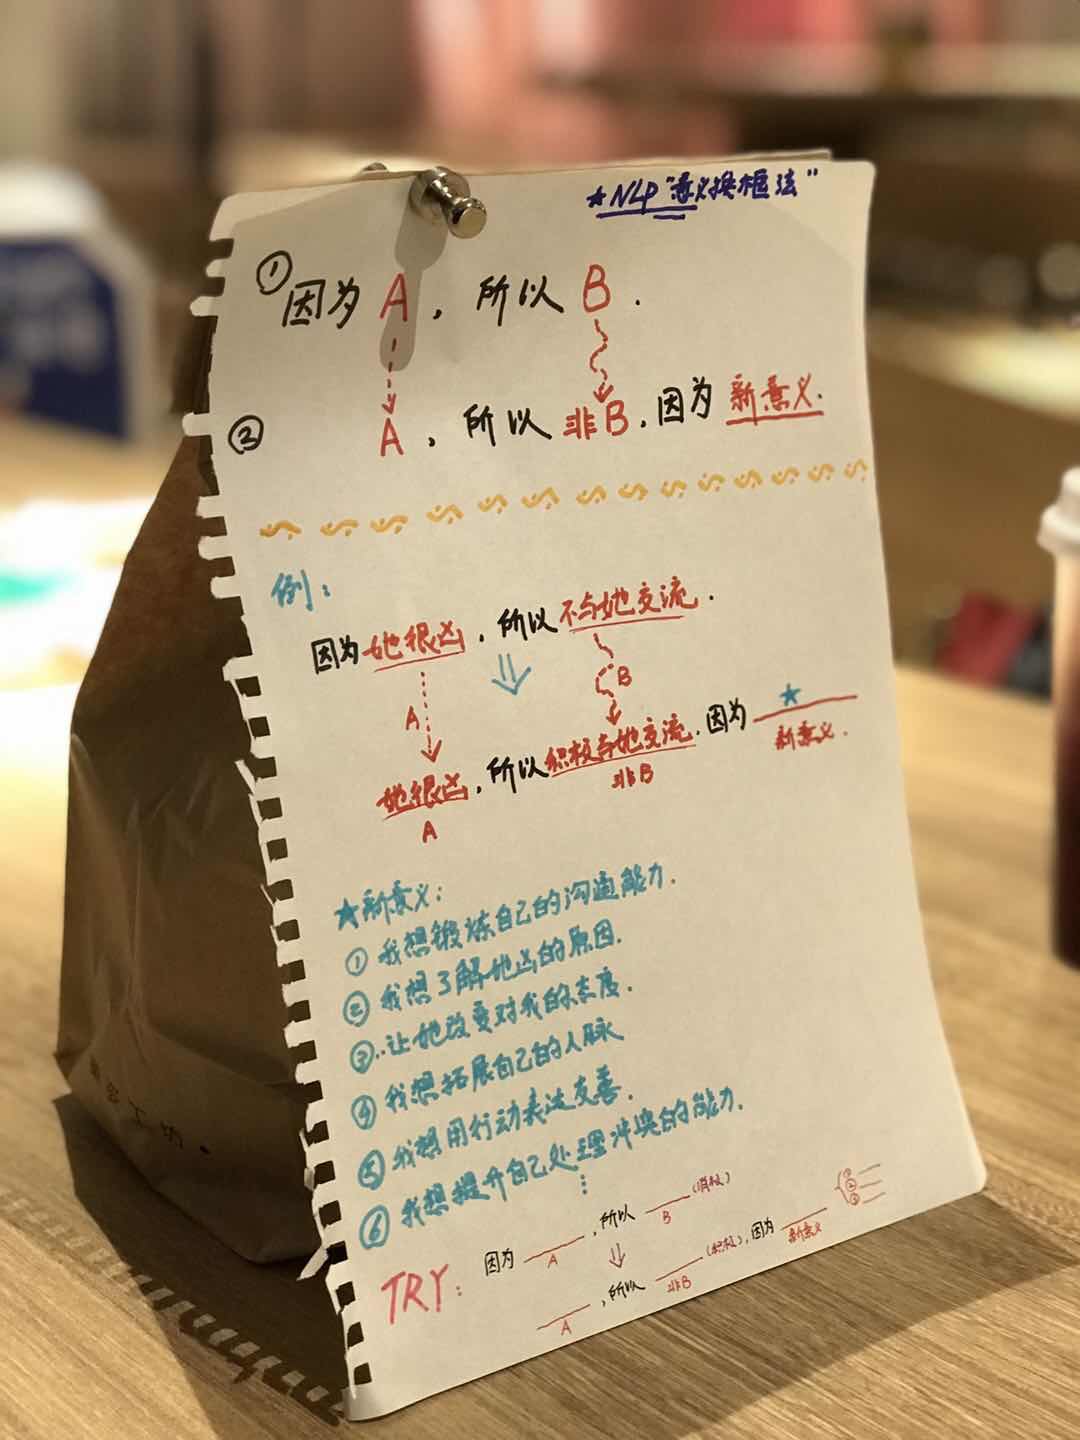 ★NLP"意义换框法"
① 因为 A , 所以 B .
② A , 所以 非B , 因为 新意义.
例:
因为她很凶 , 所以不与她交流 .
A B
她很凶 , 所以积极与她交流 , 因为 ★
A 非B 新意义.
★新意义:
① 我想锻炼自己的沟通能力.
② 我想了解她凶的原因.
③ 让她改变对我的态度.
④ 我想拓展自己的人脉
⑤ 我想用行动表达友善.
⑥ 我想提升自己处理冲突的能力.
TRY:
因为 , 所以 (消极)
A B
, 所以 (积极), 因为 ① ② ③
A 非B 新意义